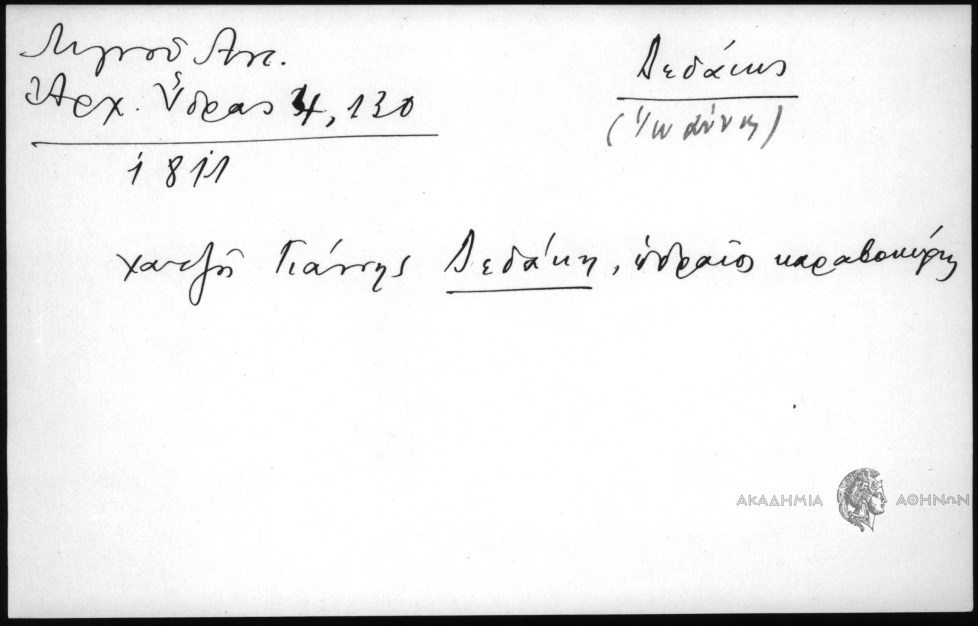 Λιγνοῦ Ἀντ.
Ἀρχ. Ὕδρας 4, 130
1811
Δεδάκης
(Ἰωάννης)
χατζῆ Γιάννης Δεδάκη, ὑδραῖος καραβοκύρης
ΑΚΑΔΗΜΙΑ ΑΘΗΝΩΝ